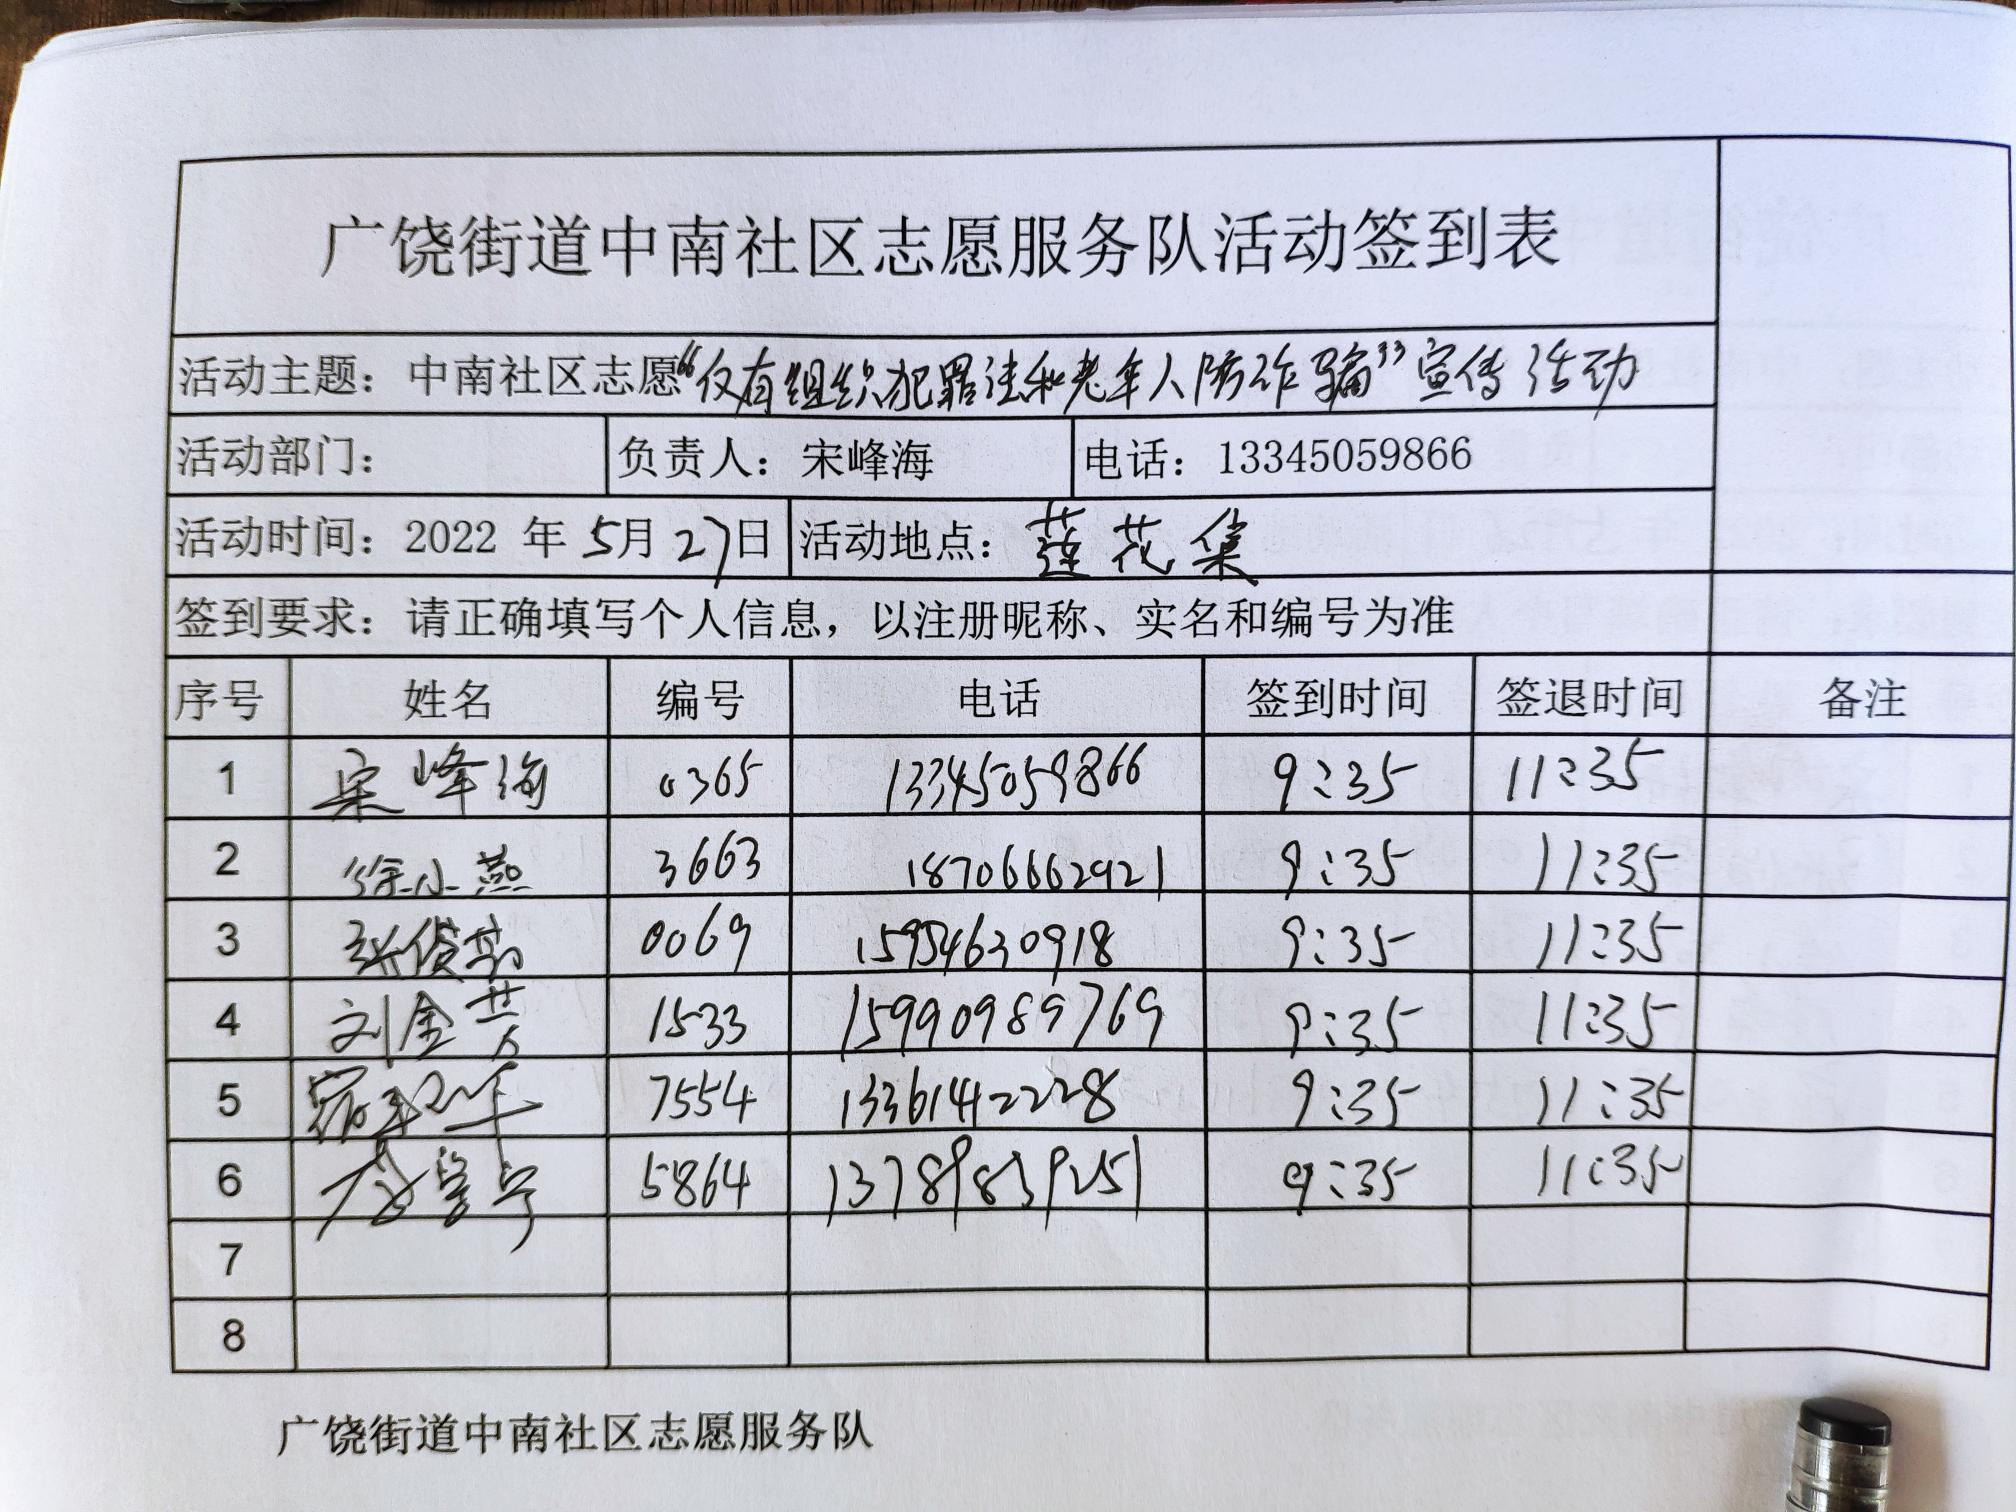 广饶街道中南社区志愿服务队活动签到表
活动主题：中南社区志愿“仅有组织犯罪法和老年人防诈骗”宣传活动
活动部门： 负责人：宋峰海 电话：13345059866
活动时间：2022 年 5月 27日 活动地点：莲花集
签到要求：请正确填写个人信息，以注册昵称、实名和编号为准
序号 姓名 编号 电话 签到时间 签退时间 备注
1 宋峰海 0365 13345059866 9:35 11:35
2 徐小燕 3663 18706662921 9:35 11:35
3 张俊 0069 15954630918 9:35 11:35
4 刘金芳 1533 15990989769 9:35 11:35
5 7554 13361422228 9:35 11:35
6 5864 13789839251 9:35 11:35
7
8
广饶街道中南社区志愿服务队